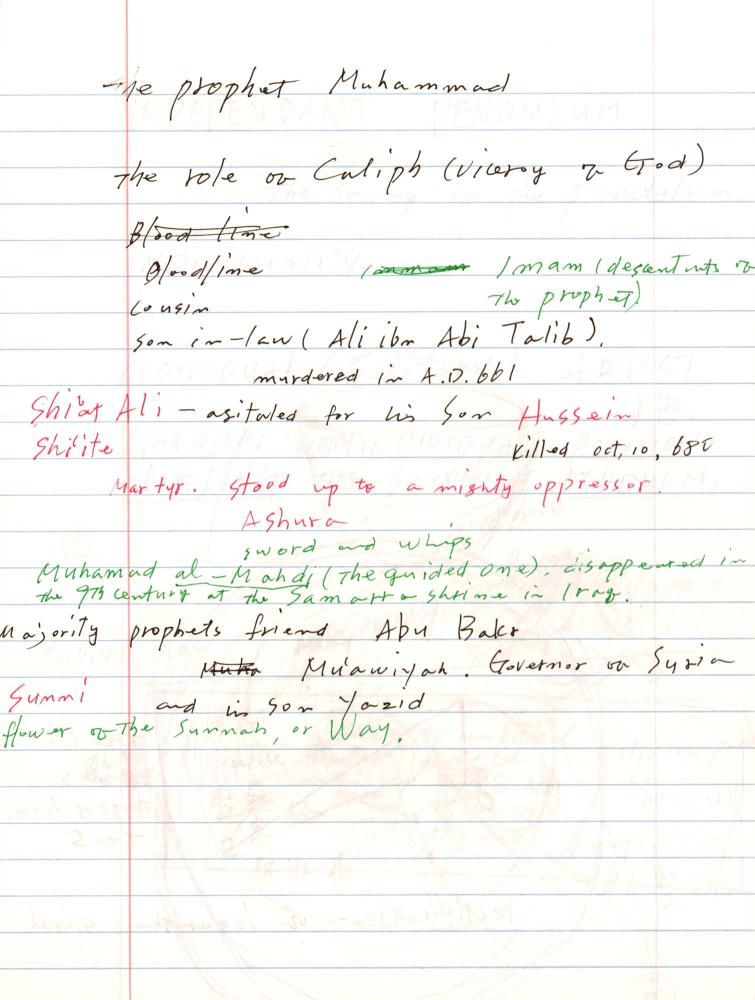 The prophet Muhammad
The role of Caliph (viceroy of God)
Blood line
Bloodline Imam (descentnts of
cousin the prophet)
son in-law ( Ali ibn Abi Talib ).
murdered in A.D. 661
Shi'at Ali - agitaled for his son Hussein
Shi'ite Killed oct, 10, 680
Martyr. stood up to a mighty oppressor.
Ashura
sword and whips
Muhamad al-Mahdi (The guided one). disappeared in
the 9th century at the Samarra shrine in Iraq.
Majority prophets friend Abu Bakr
Mu'awiyah. Governor of Syria
Sunni and is son Yazid
flower of the Sunnah, or Way.